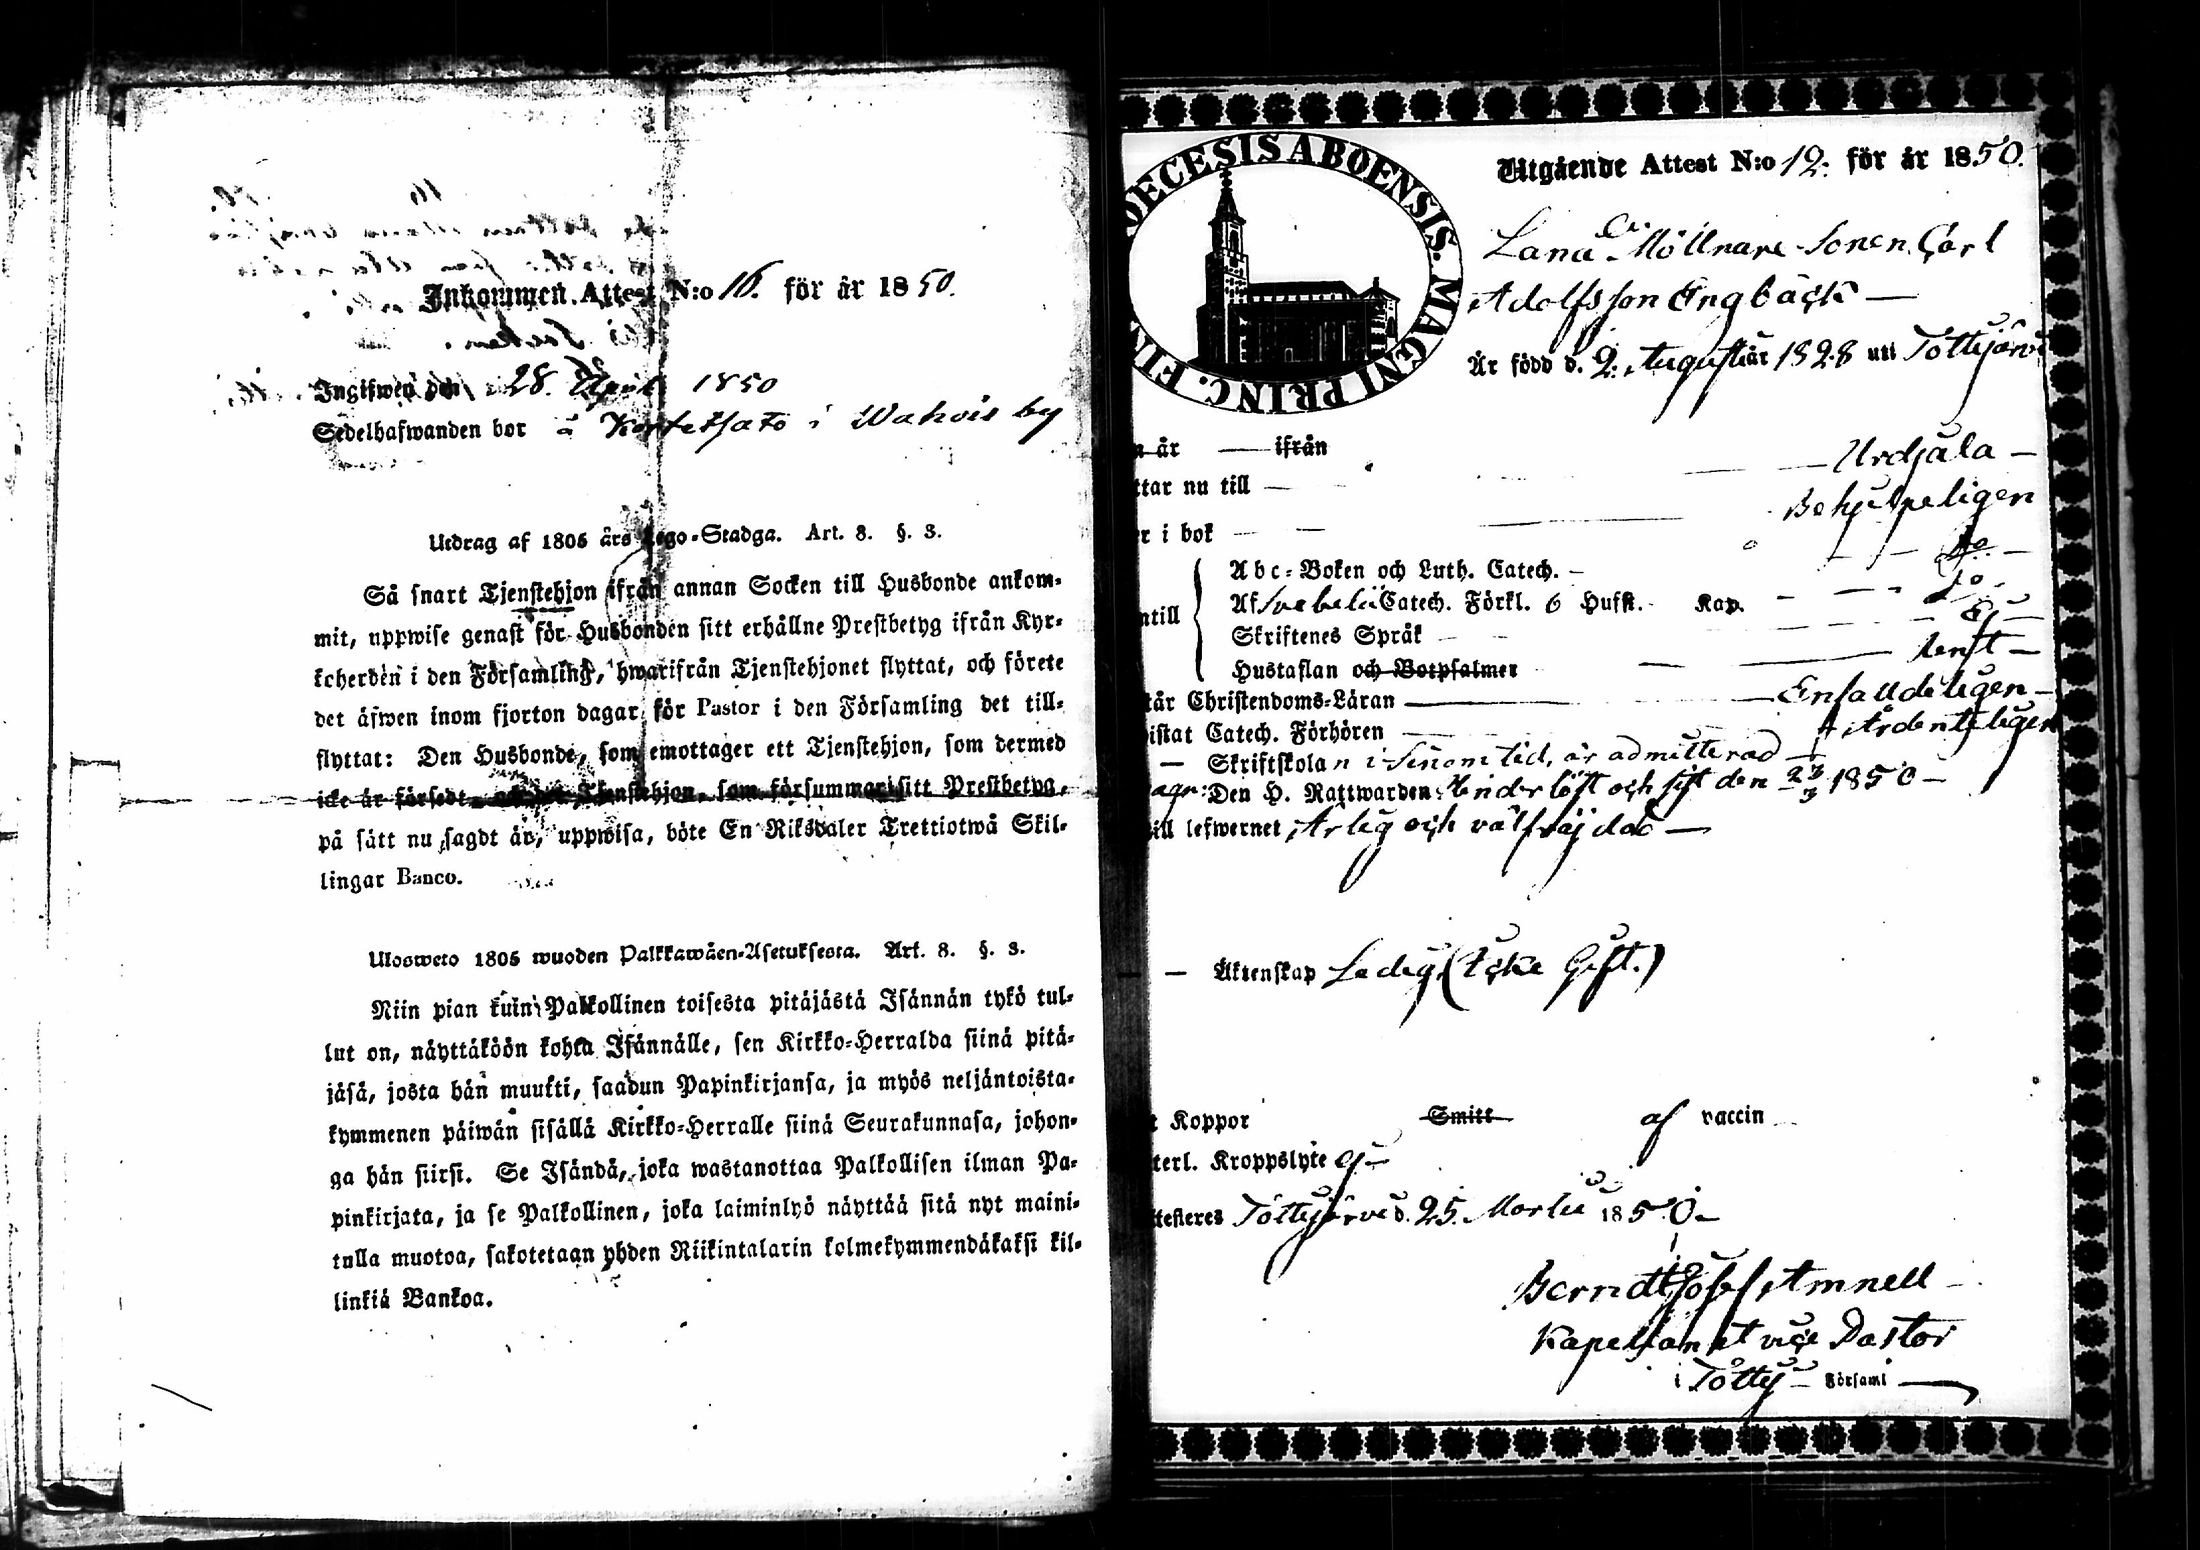 Inkommen Attest N:o 16. för år 1850.
Ingifwen den 28. April 1850
Sedelhafwanden bor å Kortesato i Wahois by
Utdrag af 1805 års Lego-Stadga. Art. 8. §. 3.
Så snart Tjenstehjon ifrån annan Socken till Husbonde ankom-
mit, uppwise genast för Husbonden sitt erhållne Prestbetyg ifrån Kyr-
koherden i den Församling, hwarifrån Tjenstehjonet flyttat, och förete
det äfwen inom fjorton dagar för Pastor i den Församling det till-
flyttat: Den Husbonde, som emottager ett Tjenstehjon, som dermed
icke är försedt, Tjenstehjon, som försummar sitt Prestbetyg,
på sätt nu sagdt är, uppwisa, böte En Riksdaler Trettiotwå Skil-
lingar Banco.
Ulosweto 1805 wuoden Palkkawäen-Asetuksesta. Art. 8. §. 3.
Niin pian kuin Palkollinen toisesta pitäjästä Isännän tykö tul-
lut on, näyttäköön kohta Isännälle, sen Kirkko-Herralda siinä pitä-
jäsä, josta hän muutti, saadun Papinkirjansa, ja myös neljäntoista-
kymmenen päiwän sisällä Kirkko-Herralle siinä Seurakunnasa, johon-
ga hän siirsi. Se Isändä, joka wastanottaa Palkollisen ilman Pa-
pinkirjata, ja se Palkollinen, joka laiminlyö näyttää sitä nyt maini-
tulla muotoa, sakotetaan yhden Riikintalarin kolmekymmendäkaksi kil-
linkiä Bankoa.
DECESIS ABOENSIS. MAGNI PRINC. FIN
Utgående Attest N:o 12. för år 1850.
Möllnare-Sonen Carl
Adolfsson Engbäck —
Är född d. 2. August år 1828 uti Tottijärvi
n år — ifrån
ttar nu till — Urdjala —
er i bok — Behjelpeligen
Abc-Boken och Luth. Catech. —
Af Svebelii Catech. Förkl. 6 Hufst. Kap.
ntill Skriftenes Språk
Hustaflan och Botpsalmer
tår Christendoms-Läran — Enfaldeligen —
istat Catech. Förhören — Ordenteligen
— Skriftskolan i sinom tid, är admitterad —
Den H. Nattwarden Hinderlöst och sist den 23/3 1850 —
till lefwernet Ärlig och välfräjdad —
— Äktenskap Ledig (Icke Gift.)
t Koppor Smitt af vaccin
terl. Kroppslyte ej —
ttesteres Tottijärvi d. 25. Martii 1850 —
Berndt Josef Amnell
Kapellan et vice Pastor
i Totty — Församl